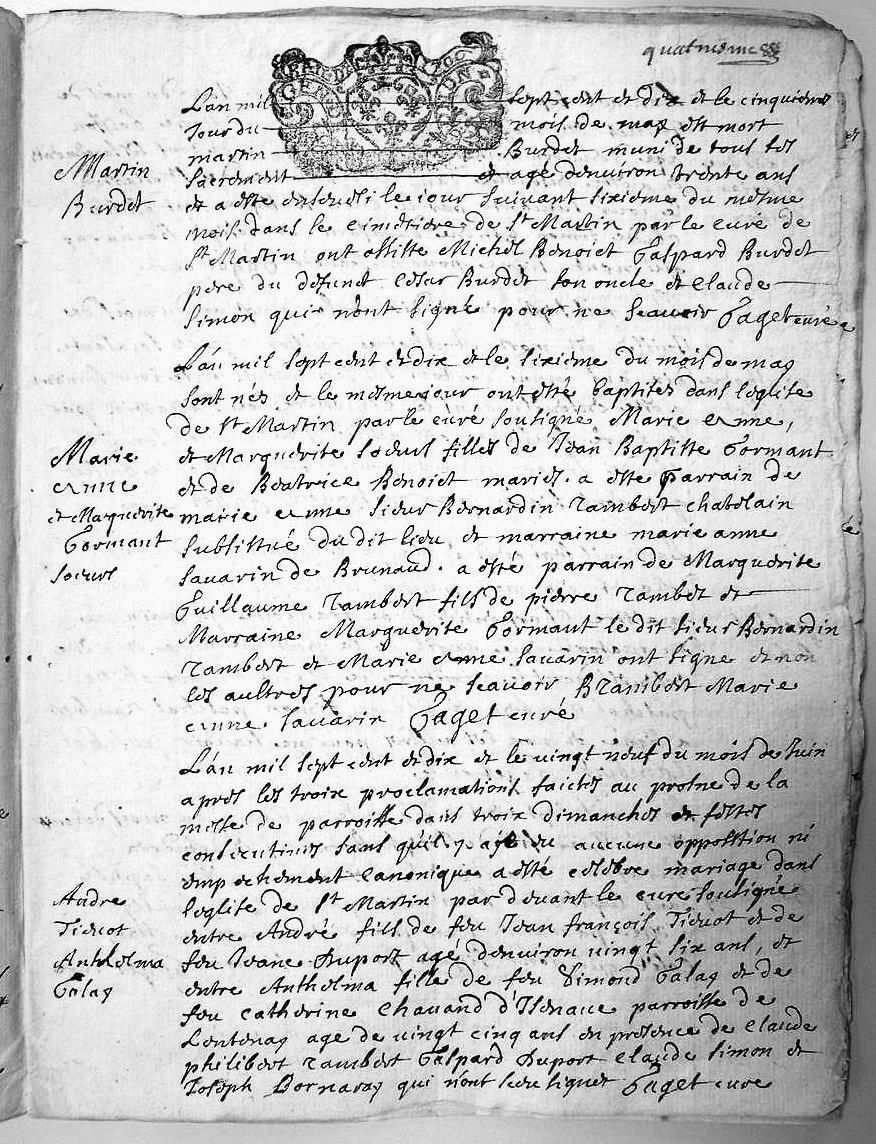 quatriesme
L'an mil sept cent et dix et le cinquiesme
Jour du mois de may est mort
martin Burdet muni de tous ses
sacrement et agé denuiron trente ans
et a esté enseueli le iour suiuant sixieme du mesme
mois dans le cimetiere de St Martin par le curé de
St Martin ont assisté Michel Benoiet Gaspard Burdet
pere du defunct Cesar Burdet son oncle et Claude
Simon qui n'ont signé pour ne scauoir Gaget curé
Martin
Burdet
L'an mil sept cent et dix et le sixieme du mois de may
sont nés et le mesme iour ont esté baptises dans leglise
de St Martin par le curé soussigné Marie Anne,
et Marguerite soeurs filles de Jean Baptiste Gormant
et de Beatrice Benoiet mariés. a esté parrain de
marie anne sieur Bernardin Rambert chatelain
substitué du dit lieu et marraine marie anne
sauarin de Brunaud. a esté parrain de Marguerite
Guillaume Rambert fils de pierre Rambet et
Marraine Marguerite Gormant le dit sieur Bernardin
Rambert et Marie Anne sauarin ont signe et non
les aultres pour ne scauoir BRambert Marie
Anne sauarin Gaget curé
Marie
Anne
et Marguerite
Gormant
soeurs
L'an mil sept cent et dix et le vingt neuf du mois de Juin
apres les troix proclamations faictes au prosne de la
messe de parroisse dans troix dimanches et festes
consecutiues sans qu'il y aye eu aucune opposition ni
empechement canonique a esté celebré mariage dans
leglise de St Martin par deuant le curé soussigné
entre André fils de feu Jean françois Tieuot et de
feu Jeane Duport agé denuiron vingt six ans, et
entre Anthelma fille de feu Simond Galay et de
feu Catherine Chauand d'Isenaue parroisse de
Lentenay age de vingt cinq ans en presence de Claude
philibert Rambert Gaspard Duport Claude Simon et
Joseph Bornaray qui n'ont sceu signer Gaget curé
Andre
Tieuot
Anthelma
Galay